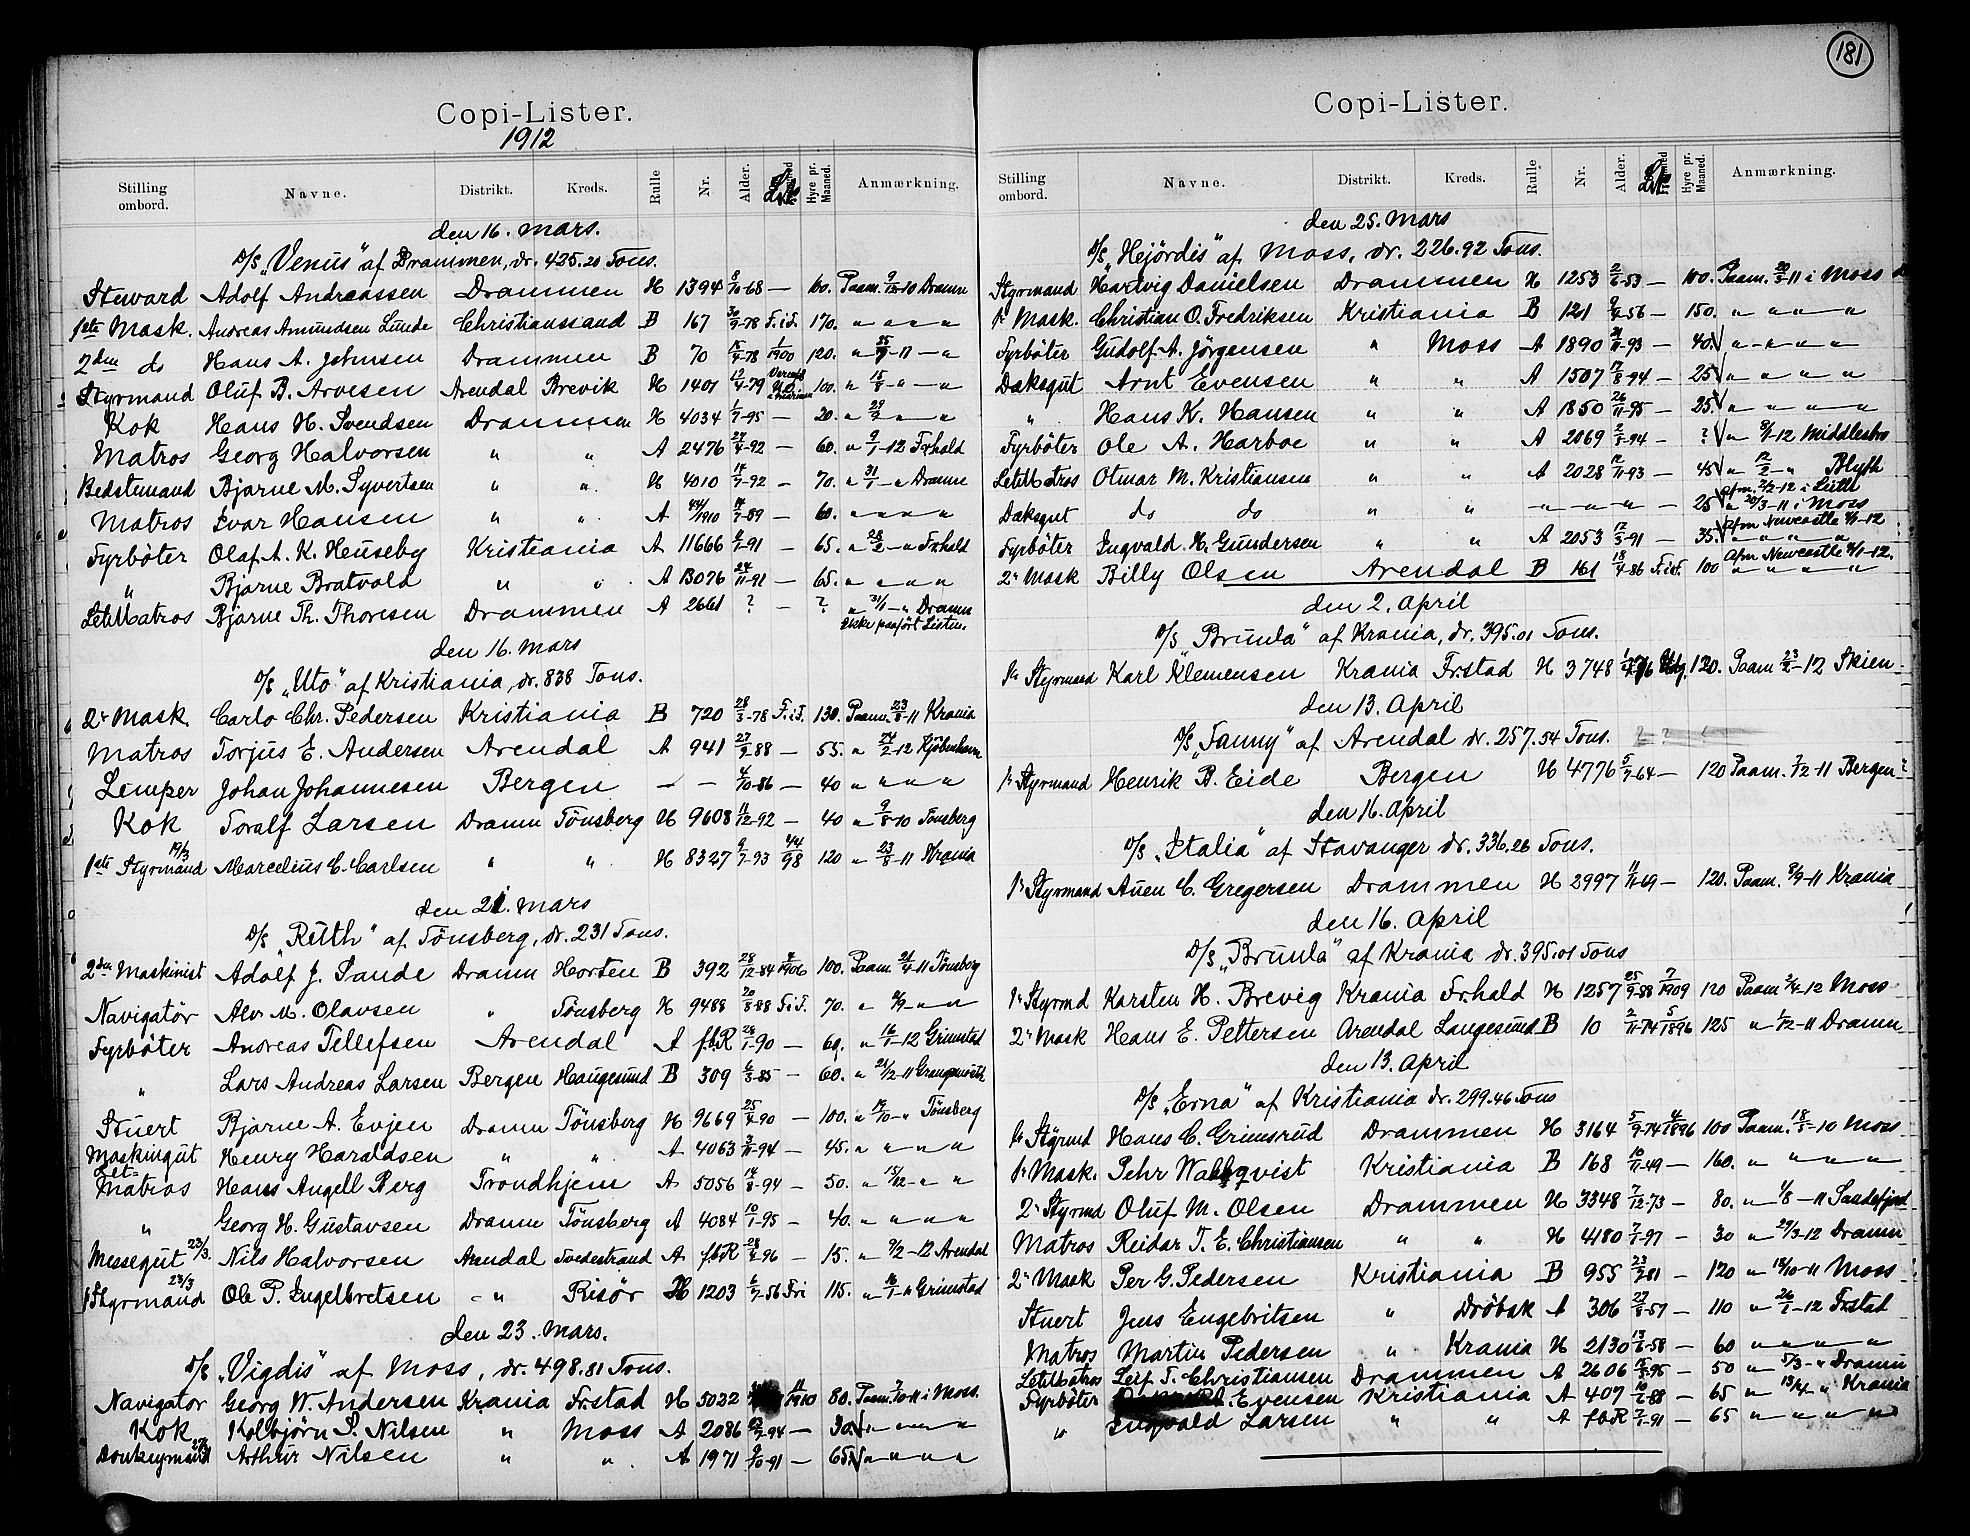 181
Copi-Lister.
1912
Stilling ombord. Navne. Distrikt. Kreds. Rulle Nr. Alder. Hyre pr. Maaned. Anmærkning.
den 16. Mars.
D/S „Venus" af Drammen, dr. 425.20 Tons.
Steward Adolf Andreassen Drammen H 1394 8/10-68 — 60. Paam. 9/12-10 Dramn
1ste Mask. Andreas Amundsen Lunde Christianssand B 167 30/9-78 F.i.F. 170. " " " "
2den do Hans A. Johnsen Drammen B 70 15/4-78 1/1900 120. " 25/9-11 — "
Styrmand Oluf B. Arvesen Arendal Brevik H 1401 12/4-79 100. " 15/8 - " - "
Kok Hans H. Svendsen Drammen H 4034 1/7-95 — 20. " 29/2 " — "
Matros Georg Halvorsen " " A 2476 27/4-92 — 60. " 9/1-12 Frhald
Bedstemand Bjarne M. Syvertsen " " H 4010 14/7-92 — 70. " 31/1 — " Dramn
Matros Ivar Hansen " " A 44/1910 17/7-89 — 60. " " " "
Fyrbøter Olaf A. K. Heuseby Kristiania A 11666 2/1-91 — 65. " 28/2 — " Frhald
" Bjarne Bratvold " " A 13026 24/11-91 — 65. " " " "
LetMatros Bjarne Th. Thoresen Drammen A 2661 ? — ? " 31/1 — " Dramn
Ikke paaført Listen.
den 16. Mars
D/S „Uto" af Kristiania, dr. 838 Tons.
2' Mask. Carlo Chr. Pedersen Kristiania B 720 28/3-78 F.i.F. 130. Paam. 23/8-11 Krania
Matros Torjus E. Andersen Arendal A 941 27/9-88 — 55. " 24/2-12 Kjøbenhavn
Lemper Johan Johannesen Bergen — — 4/10-86 — 40 " " " "
Kok Toralf Larsen Dramn Tönsberg H 9608 11/12-92 — 40 " 9/8-10 Tönsberg
19/3
1ste Styrmand Marcelius C. Carlsen " " H 8327 9/7-93 44/98 120 " 23/8-11 Krania
den 21. Mars
D/S „Ruth" af Tönsberg, dr. 231 Tons.
2den Maskinist Adolf J. Sande Dramn Horten B 392 28/12-84 2/1906 100. Paam. 21/4-11 Tönsberg
Navigatør Alv. M. Olavsen " Tönsberg H 9488 20/8-88 F.i.F. 70. " 8/9 — " — "
Fyrbøter Andreas Tellefsen Arendal A f.b.R 28/1-90 — 60. " 16/1-12 Grimstad
" Lars Andreas Larsen Bergen Haugesund B 309 6/3-85 — 60. " 24/12-11 Grangemouth
Stuert Bjarne A. Evjen Dramn Tönsberg H 9669 25/4-90 — 100. " 19/10 - " Tönsberg
Maskingut Henry Haraldsen " " A 4063 3/11-94 — 45. " " " "
Let-
Matros Hans Angell Berg Trondhjem A 5056 14/8-94 — 50. " 15/12 — " — "
" Georg H. Gustavsen Dramn Tönsberg A 4084 10/1-95 — 40. " " " "
Messegut 23/3. Nils Halvorsen Arendal Tvedestrand A f.b.R 28/4-96 — 15. " 9/2-12 Arendal
23/3
1 Styrmand Ole P. Ingelbretsen — " Risör H 1203 6/7-56 Fri 115. " 16/1 - " Grimstad
den 23. Mars.
D/S „Vigdis" af Moss, dr. 498.81 Tons.
Navigator Georg W. Andersen Krania Frstad H 5032 11/1910 80. Paam. 7/10-11 i Moss.
Kok Kolbjørn S. Nilsen " Moss A 2086 — 30. " " " "
Donkeymand Arthur Nilsen " " A 1971 9/10-91 — 65. " " " "
Copi-Lister.
Stilling ombord. Navne. Distrikt. Kreds. Rulle Nr. Alder. Hyre pr. Maaned. Anmærkning.
den 25. Mars
D/S „Hejördis" af Moss, dr. 226.92 Tons.
Styrmand Hartvig Danielsen Drammen H 1253 2/6-53 — 100. Paam. 29/3-11 i Moss
1' Mask. Christian O. Fredriksen Kristiania B 121 9/9-56 — 150. " " " "
Fyrbøter Gudolf A. Jörgensen " Moss A 1890 21/11-93 — 40. " " " "
Dæksgut Arnt Evensen " " A 1507 17/8-94 — 25 " " " "
" Hans K. Hansen " " A 1850 26/11-95 — 25. " " " "
Fyrbøter Ole A. Harboe " " A 2069 2/3-94 — ? " 8/1-12 Middlesbro
LetMatros Otmar M. Kristiansen " " A 2028 12/11-93 — 45 " 12/2 - " Blyth
Afm. 2/2-12 i Leith
Dæksgut do do " " — " — " — " — 25 " 20/3-11 i Moss
Afm Newcastle 4/1-12
Fyrbøter Ingvald H. Gundersen " " A 2053 12/3-91 — 35. " " " "
Afm Newcastle 4/1-12.
2' Mask Billy Olsen Arendal B 161 18/4-86 F.i.F. 100 " " " "
den 2. April
D/S „Brunla" af Krania, dr. 395.01 Tons.
1' Styrmand Karl Klemensen Krania Frstad H 3748 120. Paam 23/2-12 Skien
den 13. April
D/S „Fanny" af Arendal dr. 257.54 Tons.
1' Styrmand Henrik B. Eide Bergen H 4776 5/7-64 — 120 Paam. 7/12-11 Bergen
den 16. April
D/S „Italia" af Stavanger dr. 336.26 Tons.
1' Styrmand Auen C. Gregersen Drammen H 2997 11/11-69 — 120. Paam. 8/9-11 Krania
den 16. April
D/S „Brunla" af Krania dr. 395.01 Tons
1' Styrmd Karsten H. Brevig Krania Frhald H 1257 25/9-88 7/1909 120 Paam 2/4-12 Moss
2' Mask Hans E. Pettersen Arendal Langesund B 10 2/11-74 5/1896 125 " 1/12-11 Dramn
den 13. April
D/S „Erna" af Kristiania dr. 299.46 Tons
1' Styrmd Hans C. Grimsrud Drammen H 3164 5/9-74 4/1896 100 Paam. 18/5-10 Moss
1' Mask. Pehr Wahlqvist Kristiania B 168 10/11-49 — 160. " " " "
2' Styrmd Oluf M. Olsen Drammen H 3348 7/12-73 — 80. " 1/8 — 11 Sandefjord
Matros Reidar T. E. Christiansen " " H 4180 7/1-97 — 30 " 29/3-12 Dramn
2' Mask Per G. Pedersen Kristiania B 955 23/7-81 — 120 " 14/10-11 Moss
Stuert Jens Engebritsen " Dröbak A 306 27/8-57 — 110 " 26/1-12 Frstad
Matros Martin Pedersen " Krania H 2130 13/6-58 — 60 " " " "
LetMatros Leif T. Christiansen Drammen A 2606 15/5-95 — 50 " 5/3 - " Dramn
Fyrbøter Evensen Kristiania A 407 10/6-88 — 65 " 13/4 " Krania
" Ingvald Larsen " " A f.b.R 7/1-91 — 65 " " " "